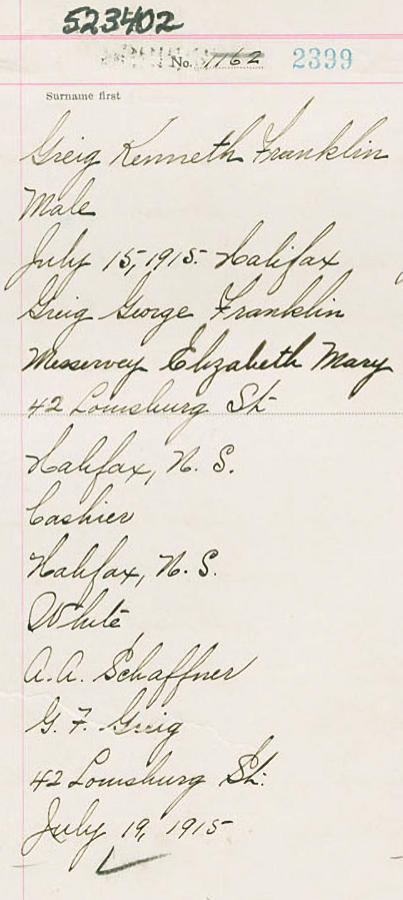 523402
No. 1162 2399
Surname first
Greig Kenneth Franklin
Male
July 15, 1915. Halifax
Greig George Franklin
Messervey Elizabeth Mary
42 Louisburg St
Halifax, N. S.
Cashier
Halifax, N. S.
White
A. A. Schaffner
G. F. Greig
42 Louisburg St.
July 19, 1915